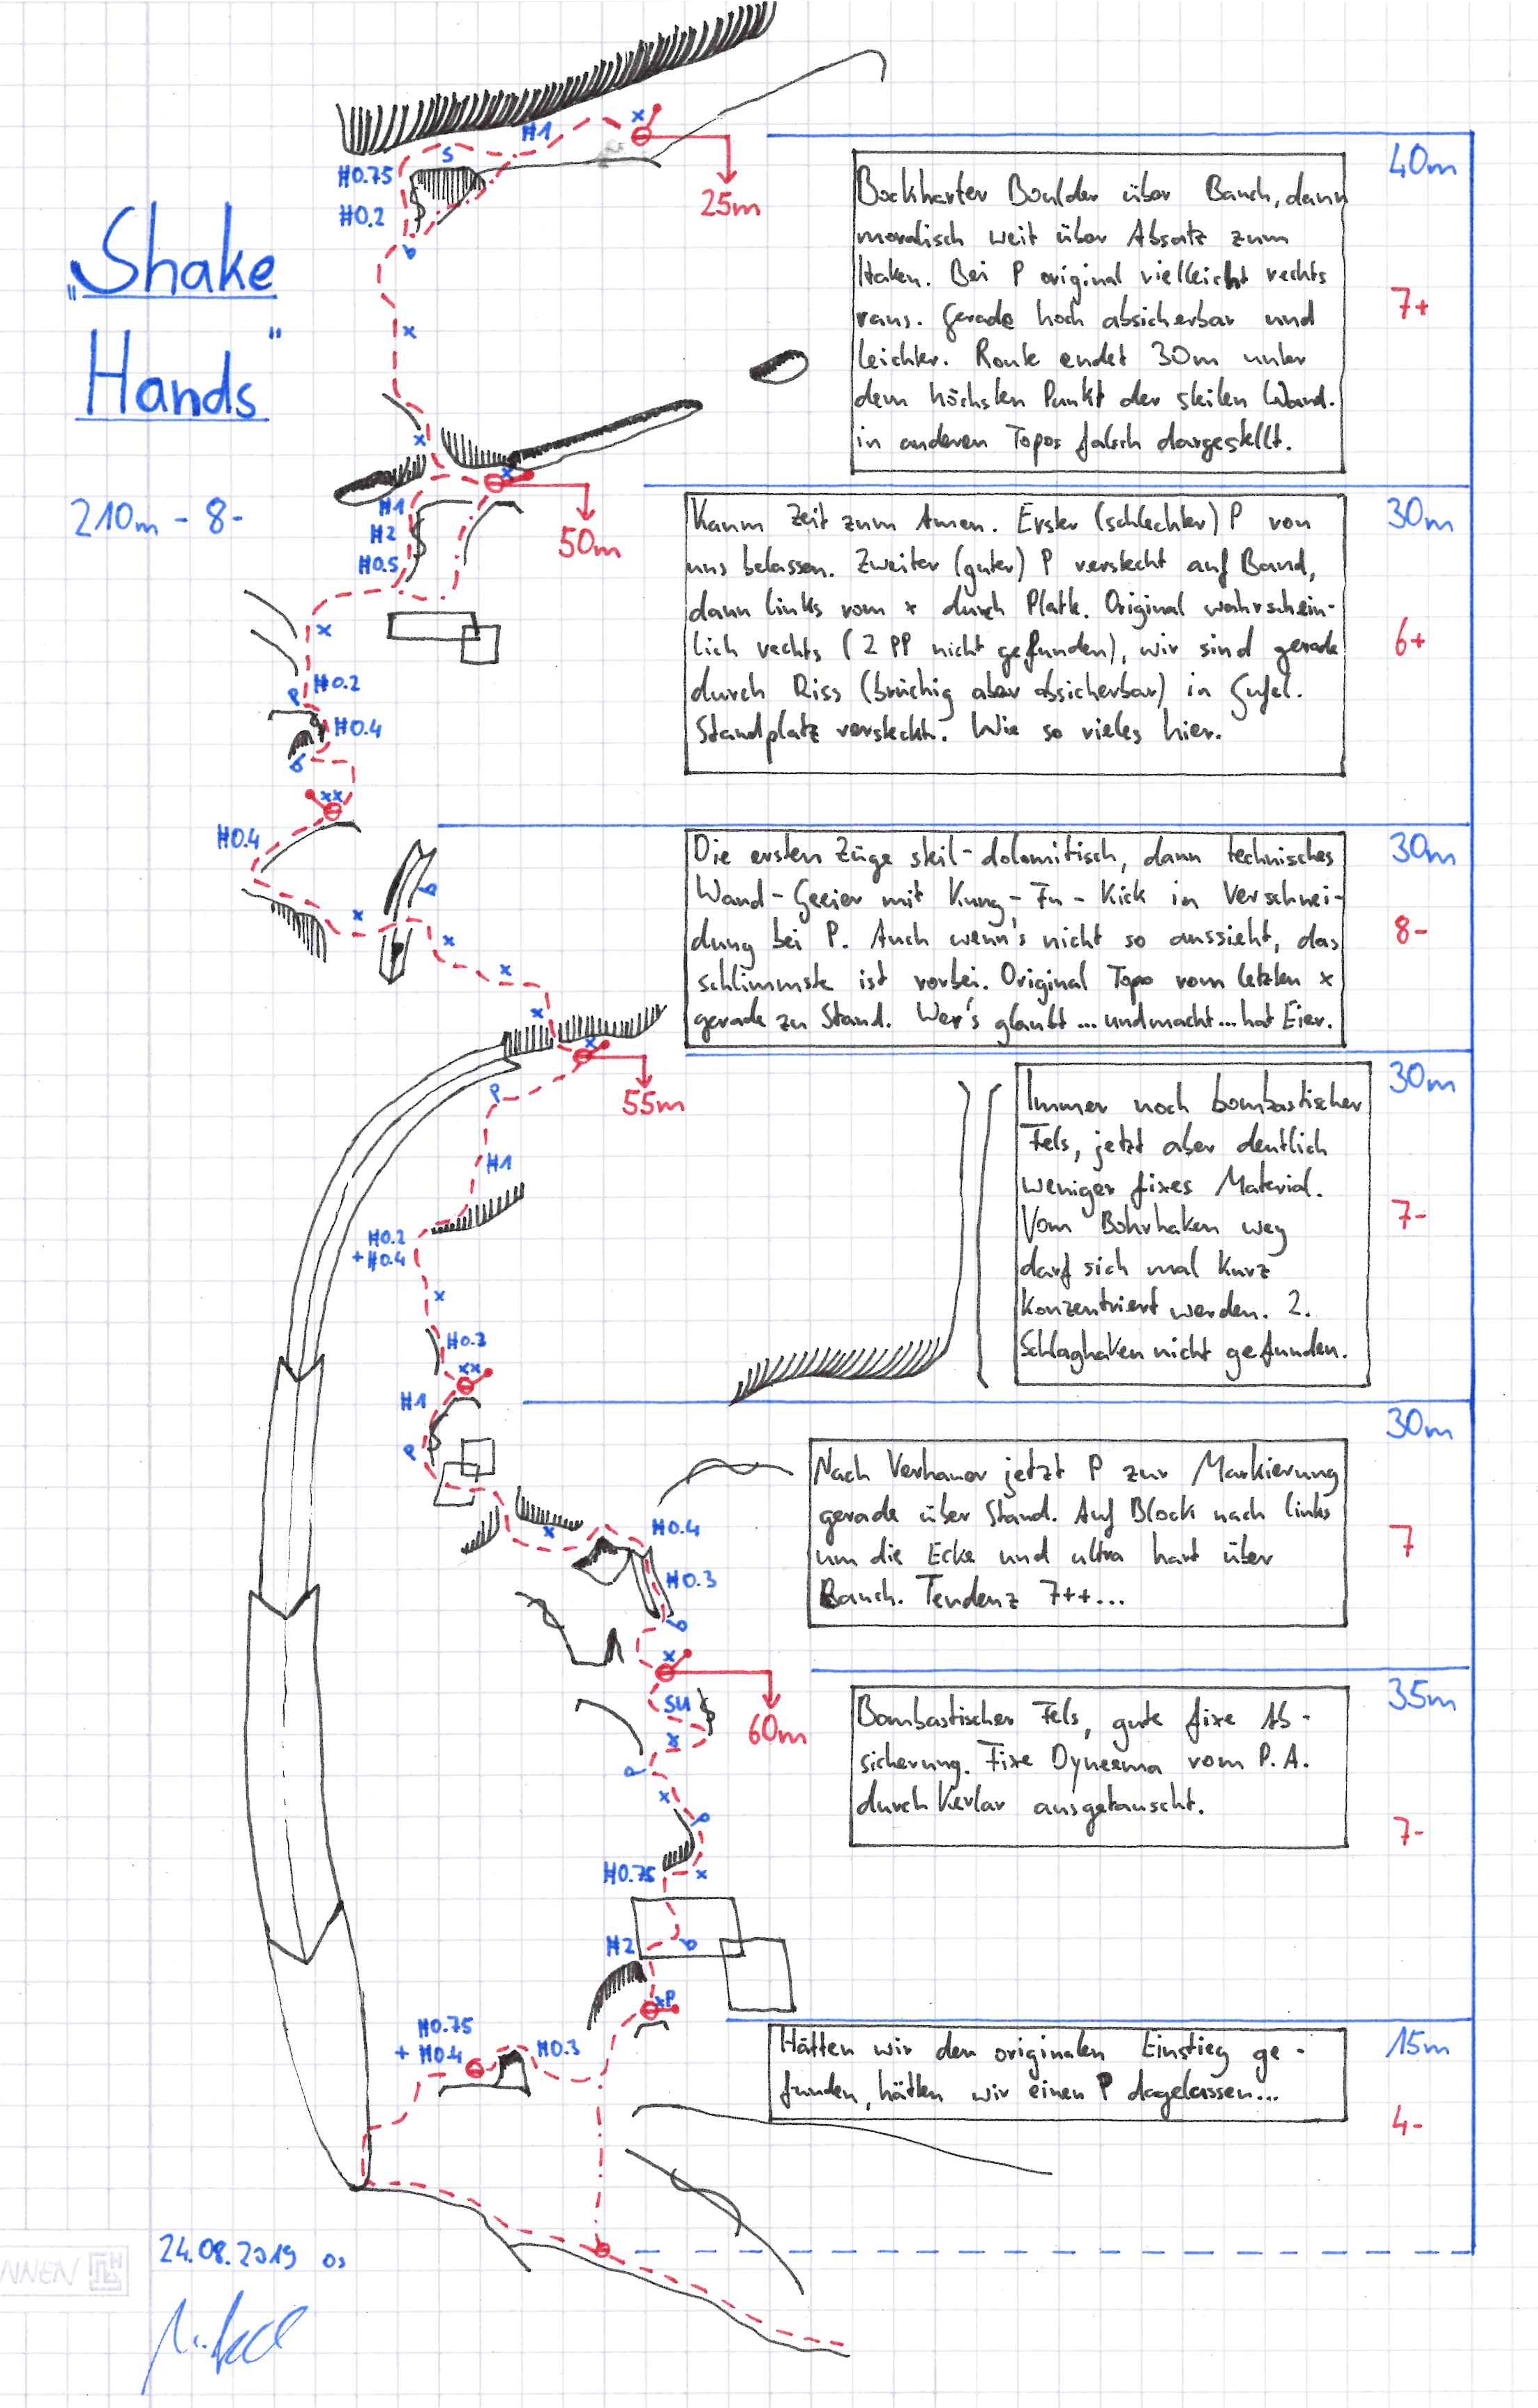 „Shake
Hands"
210m - 8-
H1
H0.75
S
H0.2
b
x
x
25m
40m
Bockharter Boulder über Bauch, dann
moralisch weit über Absatz zum
Haken. Bei P original vielleicht rechts
raus. Gerade hoch absicherbar und
leichter. Route endet 30m unter
dem höchsten Punkt der steilen Wand.
in anderen Topos falsch dargestellt.
7+
x
x
H1
H2
H0.5
50m
30m
Kaum Zeit zum Atmen. Erster (schlechter) P von
uns belassen. Zweiter (guter) P versteckt auf Band,
dann links vom x durch Platte. Original wahrschein-
lich rechts (2 PP nicht gefunden), wir sind gerade
durch Riss (brüchig aber absicherbar) in Gufel.
Standplatz versteckt. Wie so vieles hier.
6+
x
P
H0.2
H0.4
b
xx
H0.4
30m
Die ersten Züge steil-dolomitisch, dann technisches
Wand-Geeier mit Kung-Fu-Kick in Verschnei-
dung bei P. Auch wenn's nicht so aussieht, das
schlimmste ist vorbei. Original Topo vom letzten x
gerade zu Stand. Wer's glaubt... und macht... hat Eier.
8-
P
x
x
x
x
x
55m
30m
Immer noch bombastischer
Fels, jetzt aber deutlich
weniger fixes Material.
Vom Bohrhaken weg
darf sich mal kurz
konzentriert werden. 2.
Schlaghaken nicht gefunden.
7-
P
H1
H0.2
+ H0.4
x
H0.3
xx
H1
P
30m
Nach Verhauer jetzt P zur Markierung
gerade über Stand. Auf Block nach links
um die Ecke und ultra hart über
Bauch. Tendenz 7++...
7
x
H0.4
H0.3
b
x
60m
35m
Bombastischer Fels, gute fixe Ab-
sicherung. Fixe Dyneema vom P.A.
durch Kevlar ausgetauscht.
7-
SU
x
P
x
P
H0.75
x
H2
b
xP
15m
Hätten wir den originalen Einstieg ge-
funden, hätten wir einen P dagelassen...
4-
H0.75
+ H0.4
H0.3
24.08.2019
NNEN